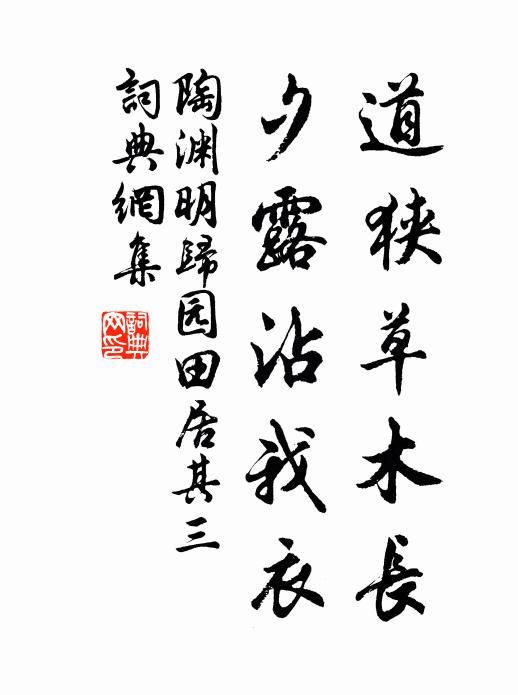 道狭草木長
夕露沾我衣
陶渊明歸园田居其三
詞典網集
詞典网印